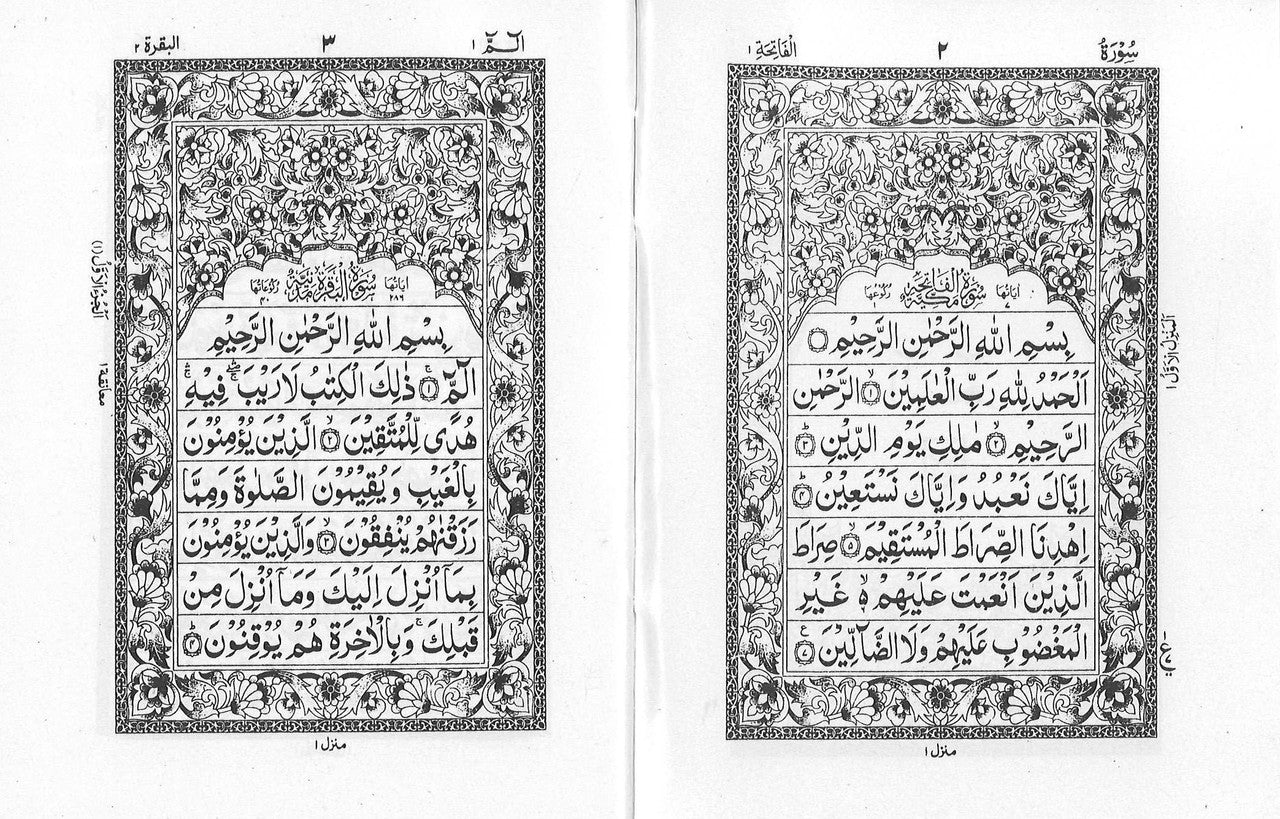 سُوْرَةُ ٢ الْفَاتِحَة ١
اٰيَاتُهَا ٧ سُوْرَةُ الْفَاتِحَةِ مَكِّيَّةٌ رُكُوْعُهَا
بِسْمِ اللّٰهِ الرَّحْمٰنِ الرَّحِيْمِ ۝
اَلْحَمْدُ لِلّٰهِ رَبِّ الْعٰلَمِيْنَ ۝١ۙ الرَّحْمٰنِ
الرَّحِيْمِ ۝٢ۙ مٰلِكِ يَوْمِ الدِّيْنِ ۝٣ؕ
اِيَّاكَ نَعْبُدُ وَاِيَّاكَ نَسْتَعِيْنُ ۝٤ؕ
اِهْدِنَا الصِّرَاطَ الْمُسْتَقِيْمَ ۝٥ۙ صِرَاطَ
الَّذِيْنَ اَنْعَمْتَ عَلَيْهِمْ ۙ۬ غَيْرِ
الْمَغْضُوْبِ عَلَيْهِمْ وَلَا الضَّآلِّيْنَ ۝٧ۧ
منزل ١
اَلْمَنْزِلُ الْاَوَّلُ ١
الٓـمّٓ ١ ٣ البقرة ٢
اٰيَاتُهَا ٢٨٦ سُوْرَةُ الْبَقَرَةِ مَدَنِيَّةٌ رُكُوْعَاتُهَا ٤٠
بِسْمِ اللّٰهِ الرَّحْمٰنِ الرَّحِيْمِ
الٓمّٓ ۝١ۚ ذٰلِكَ الْكِتٰبُ لَا رَيْبَ ۛۖۚ فِيْهِ ۛۚ
هُدًى لِّلْمُتَّقِيْنَ ۝٢ۙ الَّذِيْنَ يُؤْمِنُوْنَ
بِالْغَيْبِ وَيُقِيْمُوْنَ الصَّلٰوةَ وَمِمَّا
رَزَقْنٰهُمْ يُنْفِقُوْنَ ۝٣ۙ وَالَّذِيْنَ يُؤْمِنُوْنَ
بِمَآ اُنْزِلَ اِلَيْكَ وَمَآ اُنْزِلَ مِنْ
قَبْلِكَ ۚ وَبِالْاٰخِرَةِ هُمْ يُوْقِنُوْنَ ۝٤ؕ
منزل ١
اَلْجُزْءُ الْاَوَّلُ (١)
معانقة ١